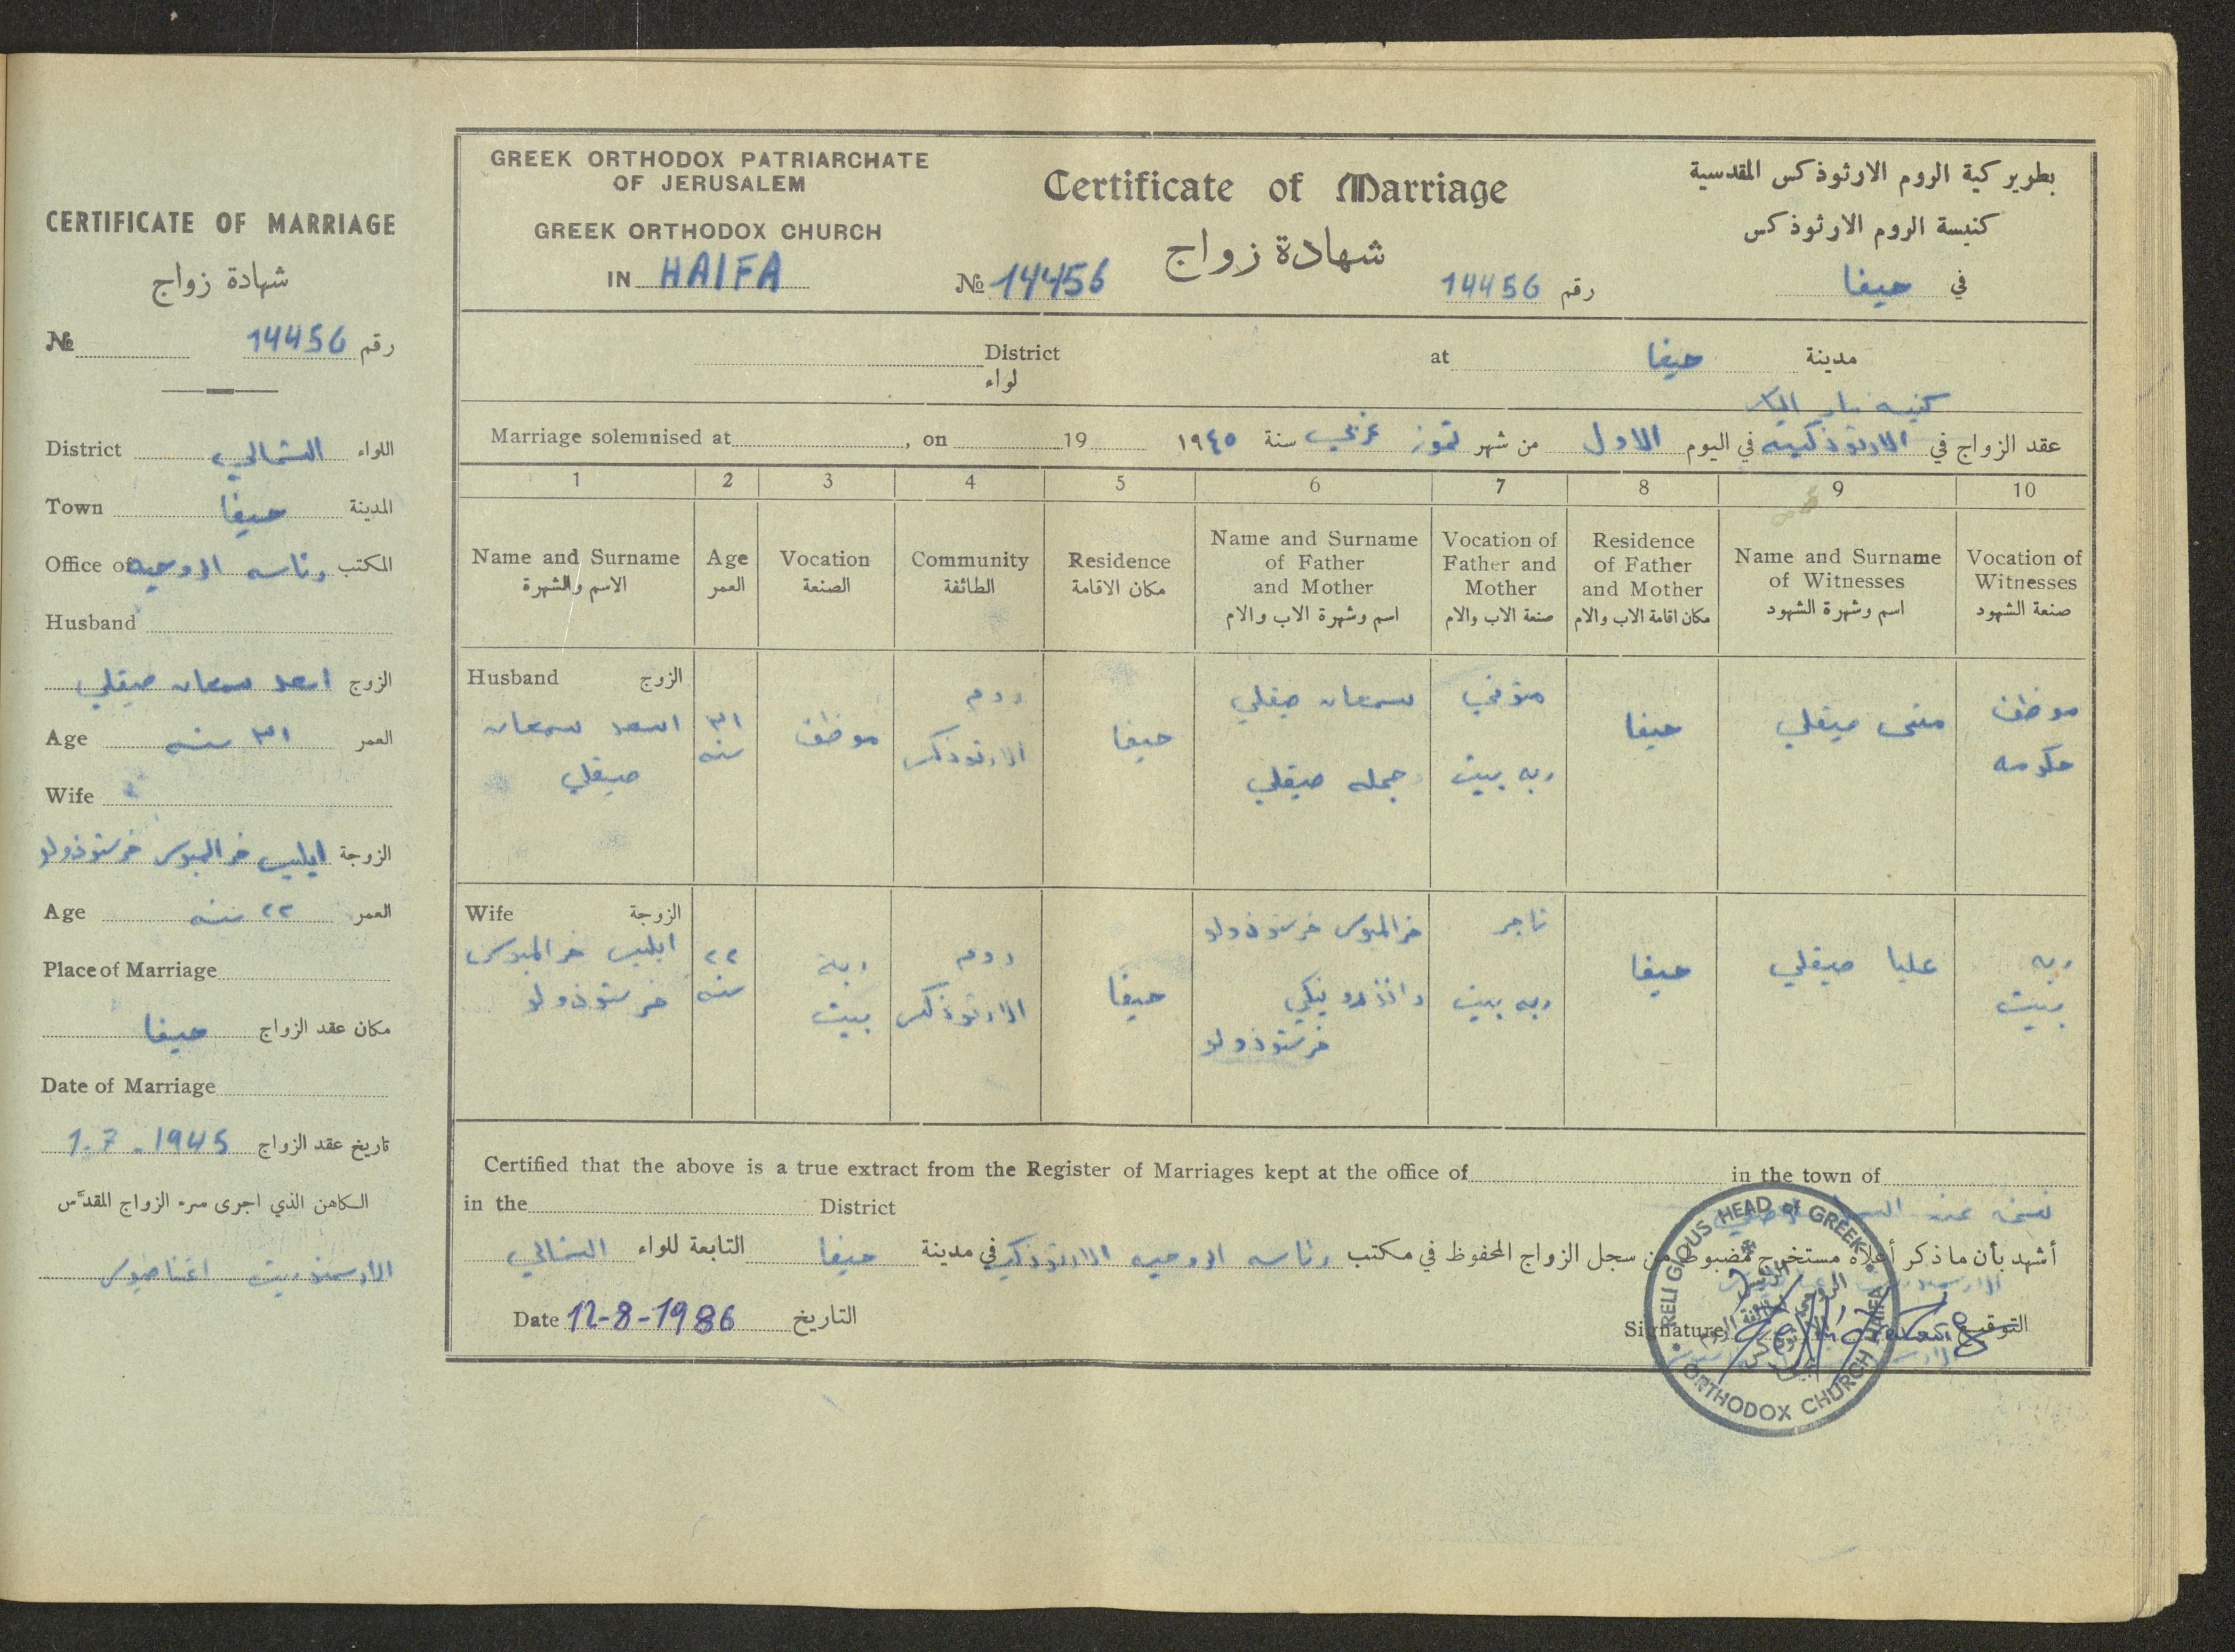 CERTIFICATE OF MARRIAGE
شهادة زواج
№ رقم 14456
District اللواء الشمالي
Town المدينة حيفا
Office of المكتب رئاسه الروحيه
Husband
الزوج اسعد سمعان صيقلي
Age العمر ٣١ سنه
Wife
الزوجة ايليس خرالمبوس خرستوذولو
Age العمر ٢٢ سنه
Place of Marriage
مكان عقد الزواج حيفا
Date of Marriage
تاريخ عقد الزواج 1.7.1945
الكاهن الذي اجرى سره الزواج المقدّس
الارشمندريت اغناطيوس
GREEK ORTHODOX PATRIARCHATE
OF JERUSALEM
GREEK ORTHODOX CHURCH
IN HAIFA
Certificate of Marriage
شهادة زواج
№ 14456
رقم 14456
بطريركية الروم الارثوذكس المقدسية
كنيسة الروم الارثوذكس
في حيفا
District at مدينة حيفا
لواء
كنيسه مار الياس
Marriage solemnised at , on 19
عقد الزواج في الارثوذكسيه في اليوم الاول من شهر تموز غربي سنة ١٩٤٥
1 2 3 4 5 6 7 8 9 10
Name and Surname
الاسم والشهرة
Age
العمر
Vocation
الصنعة
Community
الطائفة
Residence
مكان الاقامة
Name and Surname
of Father
and Mother
اسم وشهرة الاب والام
Vocation of
Father and
Mother
صنعة الاب والام
Residence
of Father
and Mother
مكان اقامة الاب والام
Name and Surname
of Witnesses
اسم وشهرة الشهود
Vocation of
Witnesses
صنعة الشهود
Husband الزوج
اسعد سمعان
صيقلي
٣١
سنه
موظف
روم
الارثوذكس
حيفا
سمعان صيقلي
وجمله صيقلي
متوفي
ربه بيت
حيفا
متى صيقلي
موظف
حكومه
Wife الزوجة
ايليس خرالمبوس
خرستوذولو
٢٢
سنه
ربة
بيت
روم
الارثوذكس
حيفا
خرالمبوس خرستوذولو
واندرونيكي
خرستوذولو
تاجر
ربه بيت
حيفا
عليا صيقلي
ربه
بيت
Certified that the above is a true extract from the Register of Marriages kept at the office of in the town of
in the District
أشهد بأن ما ذكر أعلاه مستخرج مضبوط من سجل الزواج المحفوظ في مكتب رئاسه الروحيه الارثوذكس في مدينة حيفا التابعة للواء الشمالي
Date 12-8-1986 التاريخ
Signature التوقيع
RELIGIOUS HEAD of GREEK
ORTHODOX CHURCH HAIFA